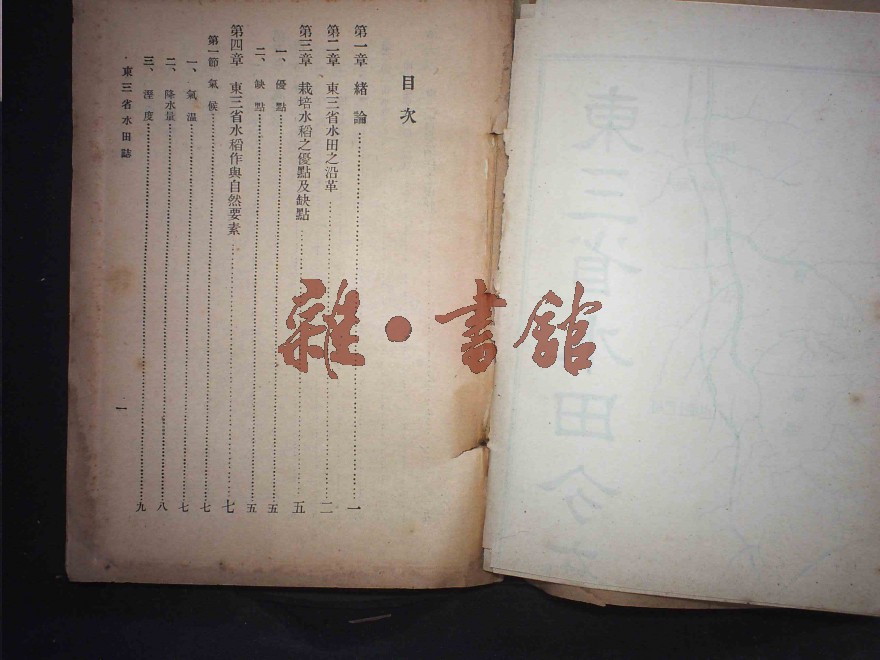 目次
第一章 緒論 一
第二章 東三省水田之沿革 二
第三章 栽培水稻之優點及缺點 五
一、優點 五
二、缺點 五
第四章 東三省水稻作與自然要素 七
第一節 氣候 七
一、氣溫 七
二、降水量 八
三、溼度 九
東三省水田誌
一
東三省水田分
雜·書館